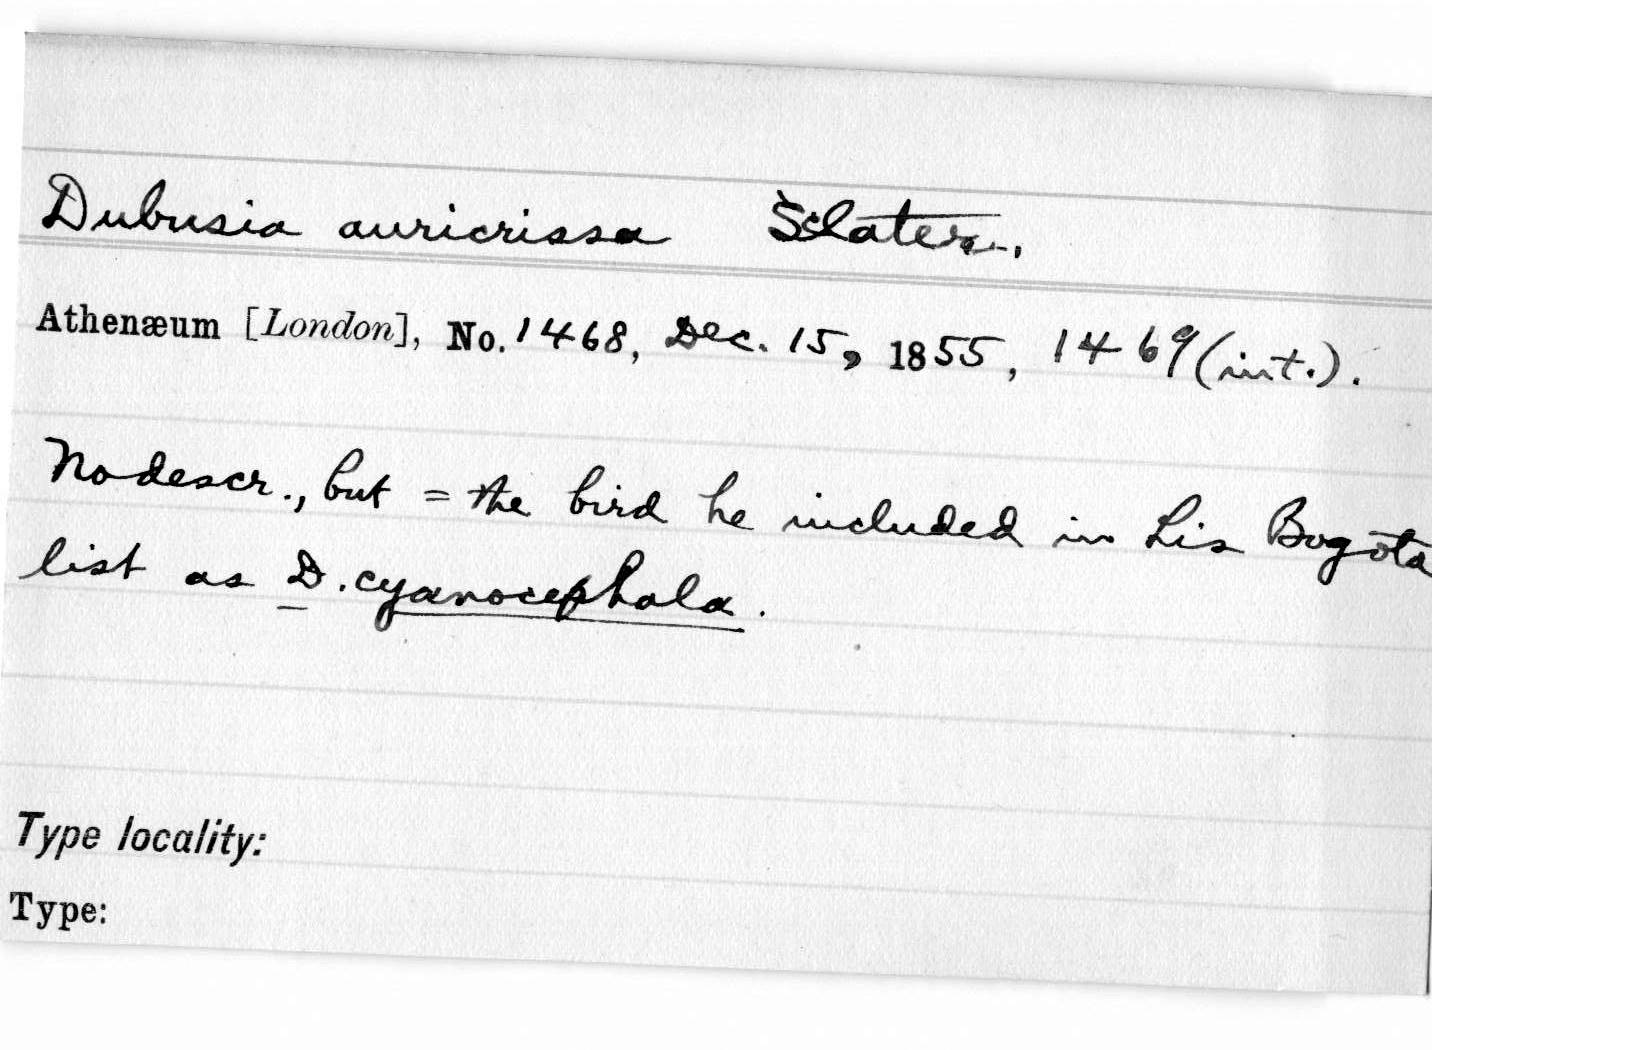 Dubusia auricrissa Sclater.,
Athenæum [London], No. 1468, Dec. 15, 1855, 1469 (int.).
No descr., but = the bird he included in his Bogota
list as D. cyanocephala.
Type locality:
Type: